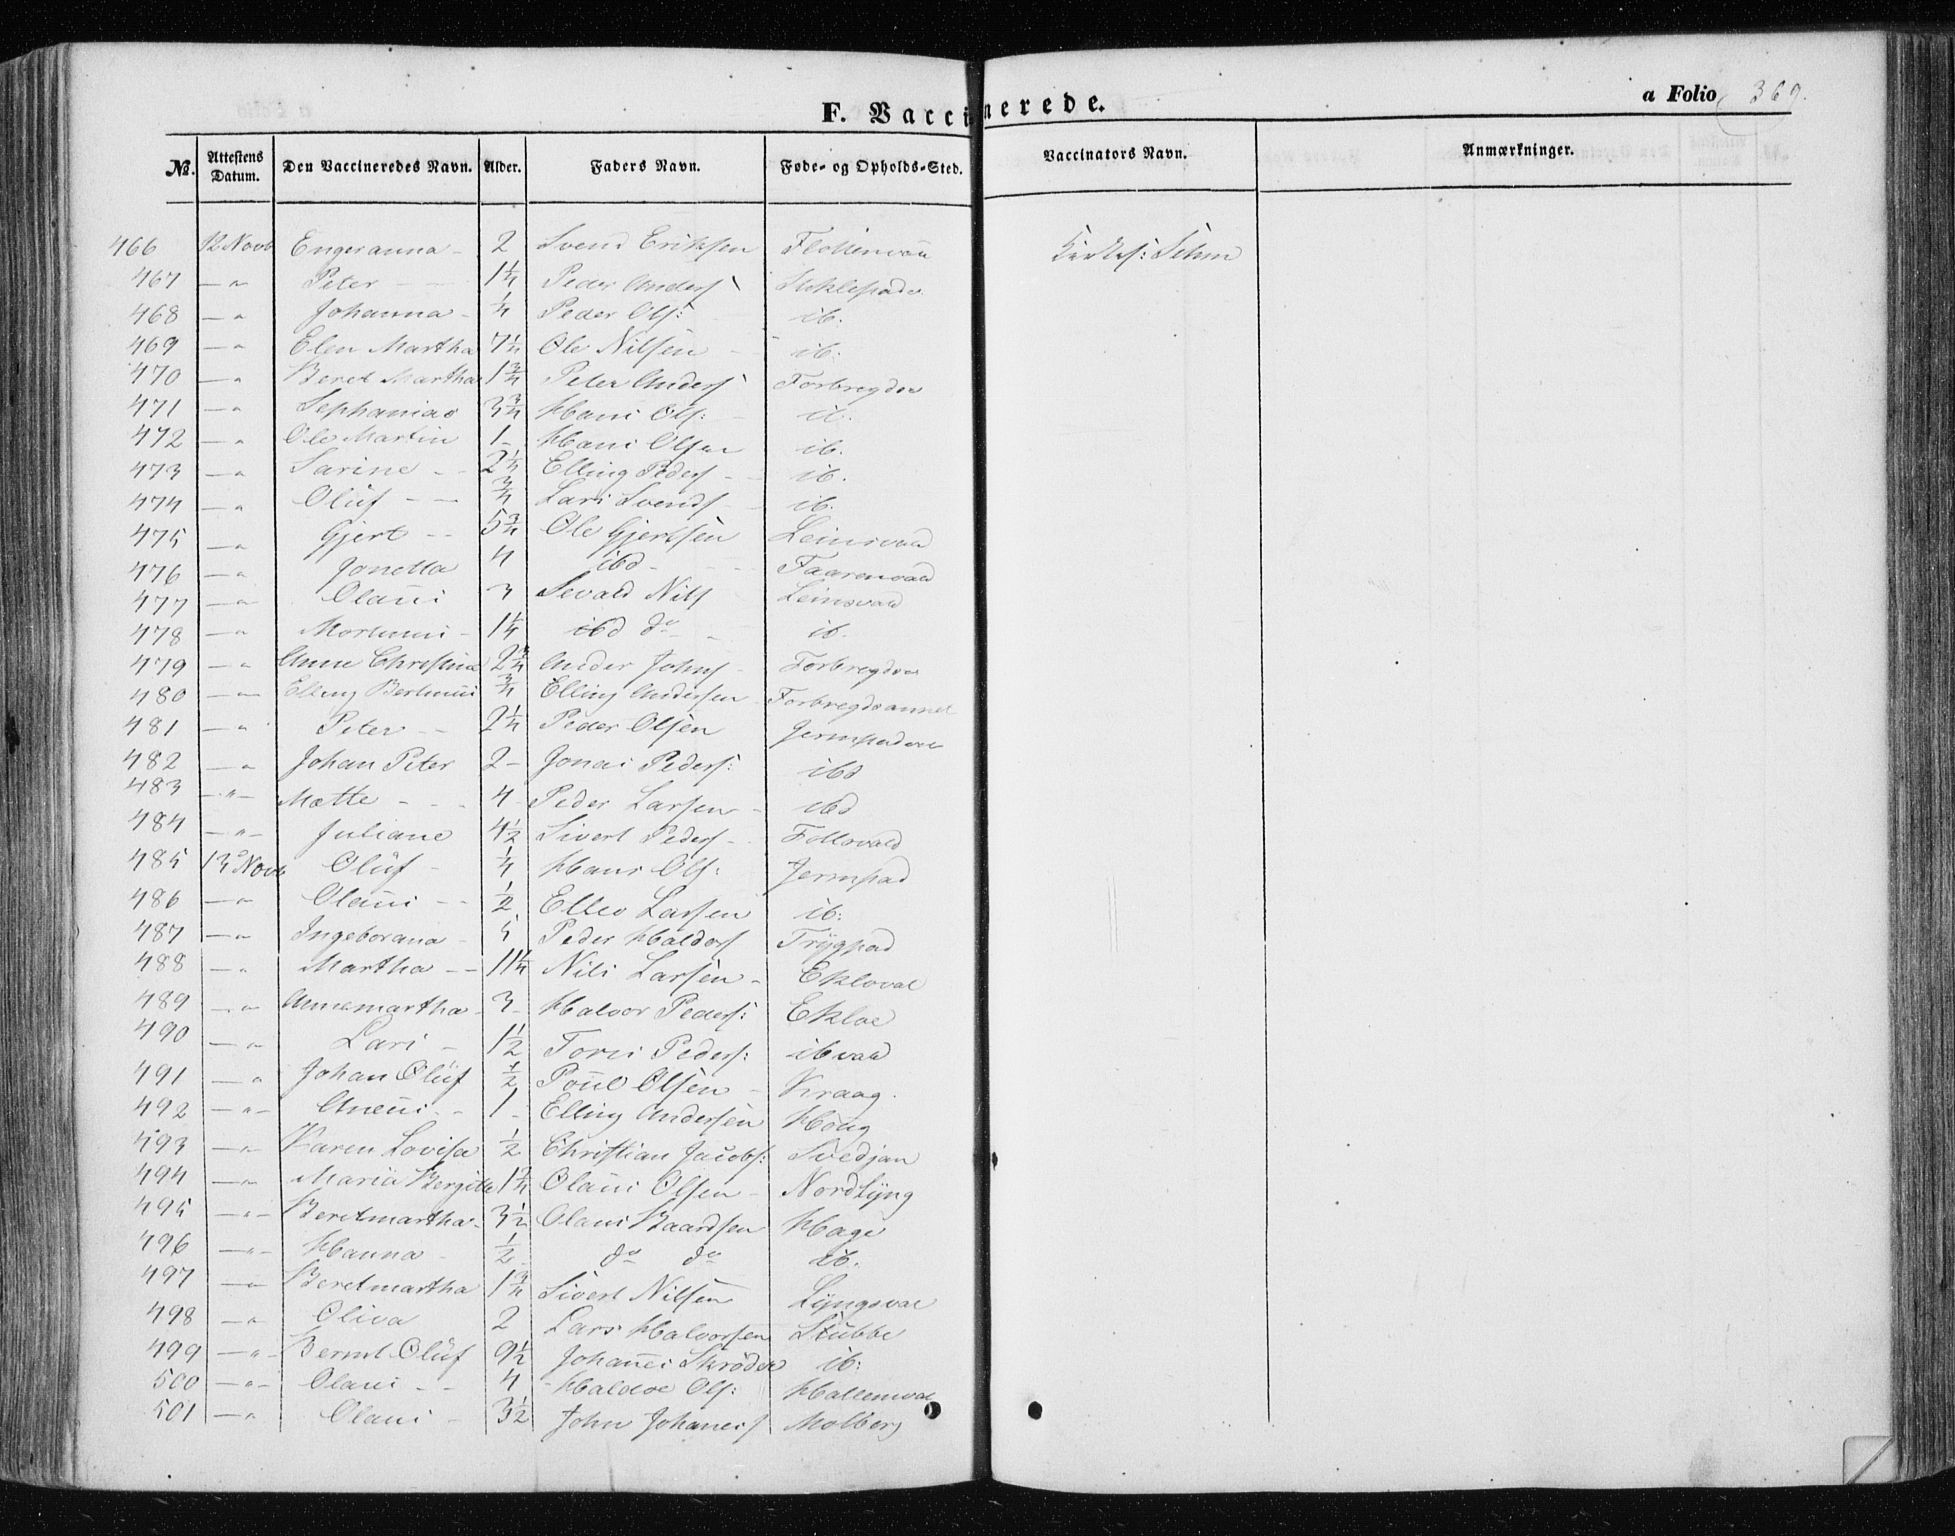 F. Vaccinerede.
a Folio 369.
No. Attestens Datum. Den Vaccineredes Navn. Alder. Faders Navn. Føde- og Opholds-Sted. Vaccinators Navn. Anmærkninger.
466 12 Novb Engeranna - 2 Svend Eriksen
467 - " Peter - - 1 1/4 Peder Anders
468 - " Johanna - 1/4 Peder Ols: ib.
469 - " Elen Martha 7 1/4 Ole Nilsen - ib:
470 - " Beret Martha 1 3/4 Peter Anders Forbregdsv
471 - " Sephanias 3 3/4 Hans Ols: - ib.
472 - " Ole Martin 1 - Hans Olsen ib.
473 - " Sarine - - 2 1/4 Elling Peders - - ib.
474 - " Oluf - - 3/4 Lars Svends - ib.
475 - " Gjert - - 5 3/4 Ole Gjertsen Leinsvald
476 - " Jonetta 4 ibd - - - Faarenvald
477 - " Olaus 3 Sevald Nils Leinsvald
478 - " Mortinus - 1 1/4 ibd do - - ib.
479 - " Anne Christina Ander Johns - Forbregdsv
480 - " Elling Bertinus 3/4 Elling Andersen Forbregdsannex
481 - " Peter - - 2 1/4 Peder Olsen
482 - " Johan Peter 2 - Jonas Peders: ibd
483 - " - Mette - - - 4 - Peder Larsen - ibd
484 - " - Juliane 4 1/2 Sivert Peders - Follovald
485 13 Novb Oluf - 1/4 Hans Ols: Jermstad
486 - " Olaus - - 1/2 Ellev Larsen ib:
487 - " Ingeborana - Peder Haldors Trygstad
488 - " Martha - - 11 1/4 Nils Larsen - Ekloval
489 - " Annemartha - 3 - Halvor Peders: Ekloe
490 - " Lars - 1 1/2 Tores Peders: ibvald
491 - " Johan Oluf 1/2 Poul Olsen - Kraag.
492 - " - Aneus - - 1 - Elling Andersen Houg
493 - " Karen Lovisa 1/2 Christian Jacobs: Svedjan
494 - " Maria Bergitte 1 3/4 Olaus Olsen - Nordlyng
495 - " - Beretmartha - 3 1/2 Olaus Baardsen Hage
496 - " - Hanna - 1/2 - do do ib.
497 - " Beretmartha 1 3/4 Sivert Nilsen Lyngsval
498 - " Oliva 2 Lars Halvorsen Stubbe
499 - " - Bernt Oluf 9 1/2 Johannes Skrøder ib:
500 - " - Olaus - - 4 - Haldoe Ols: Hallemval
501 - " Olaus - 3 1/2 John Johanes Molberg